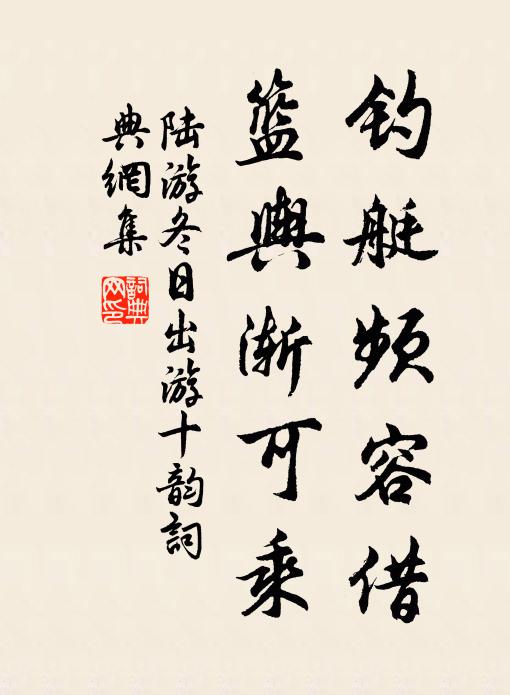 钓艇频容借
籃輿渐可乘
陆游冬日出游十韵詞
典網集
詞典
网印